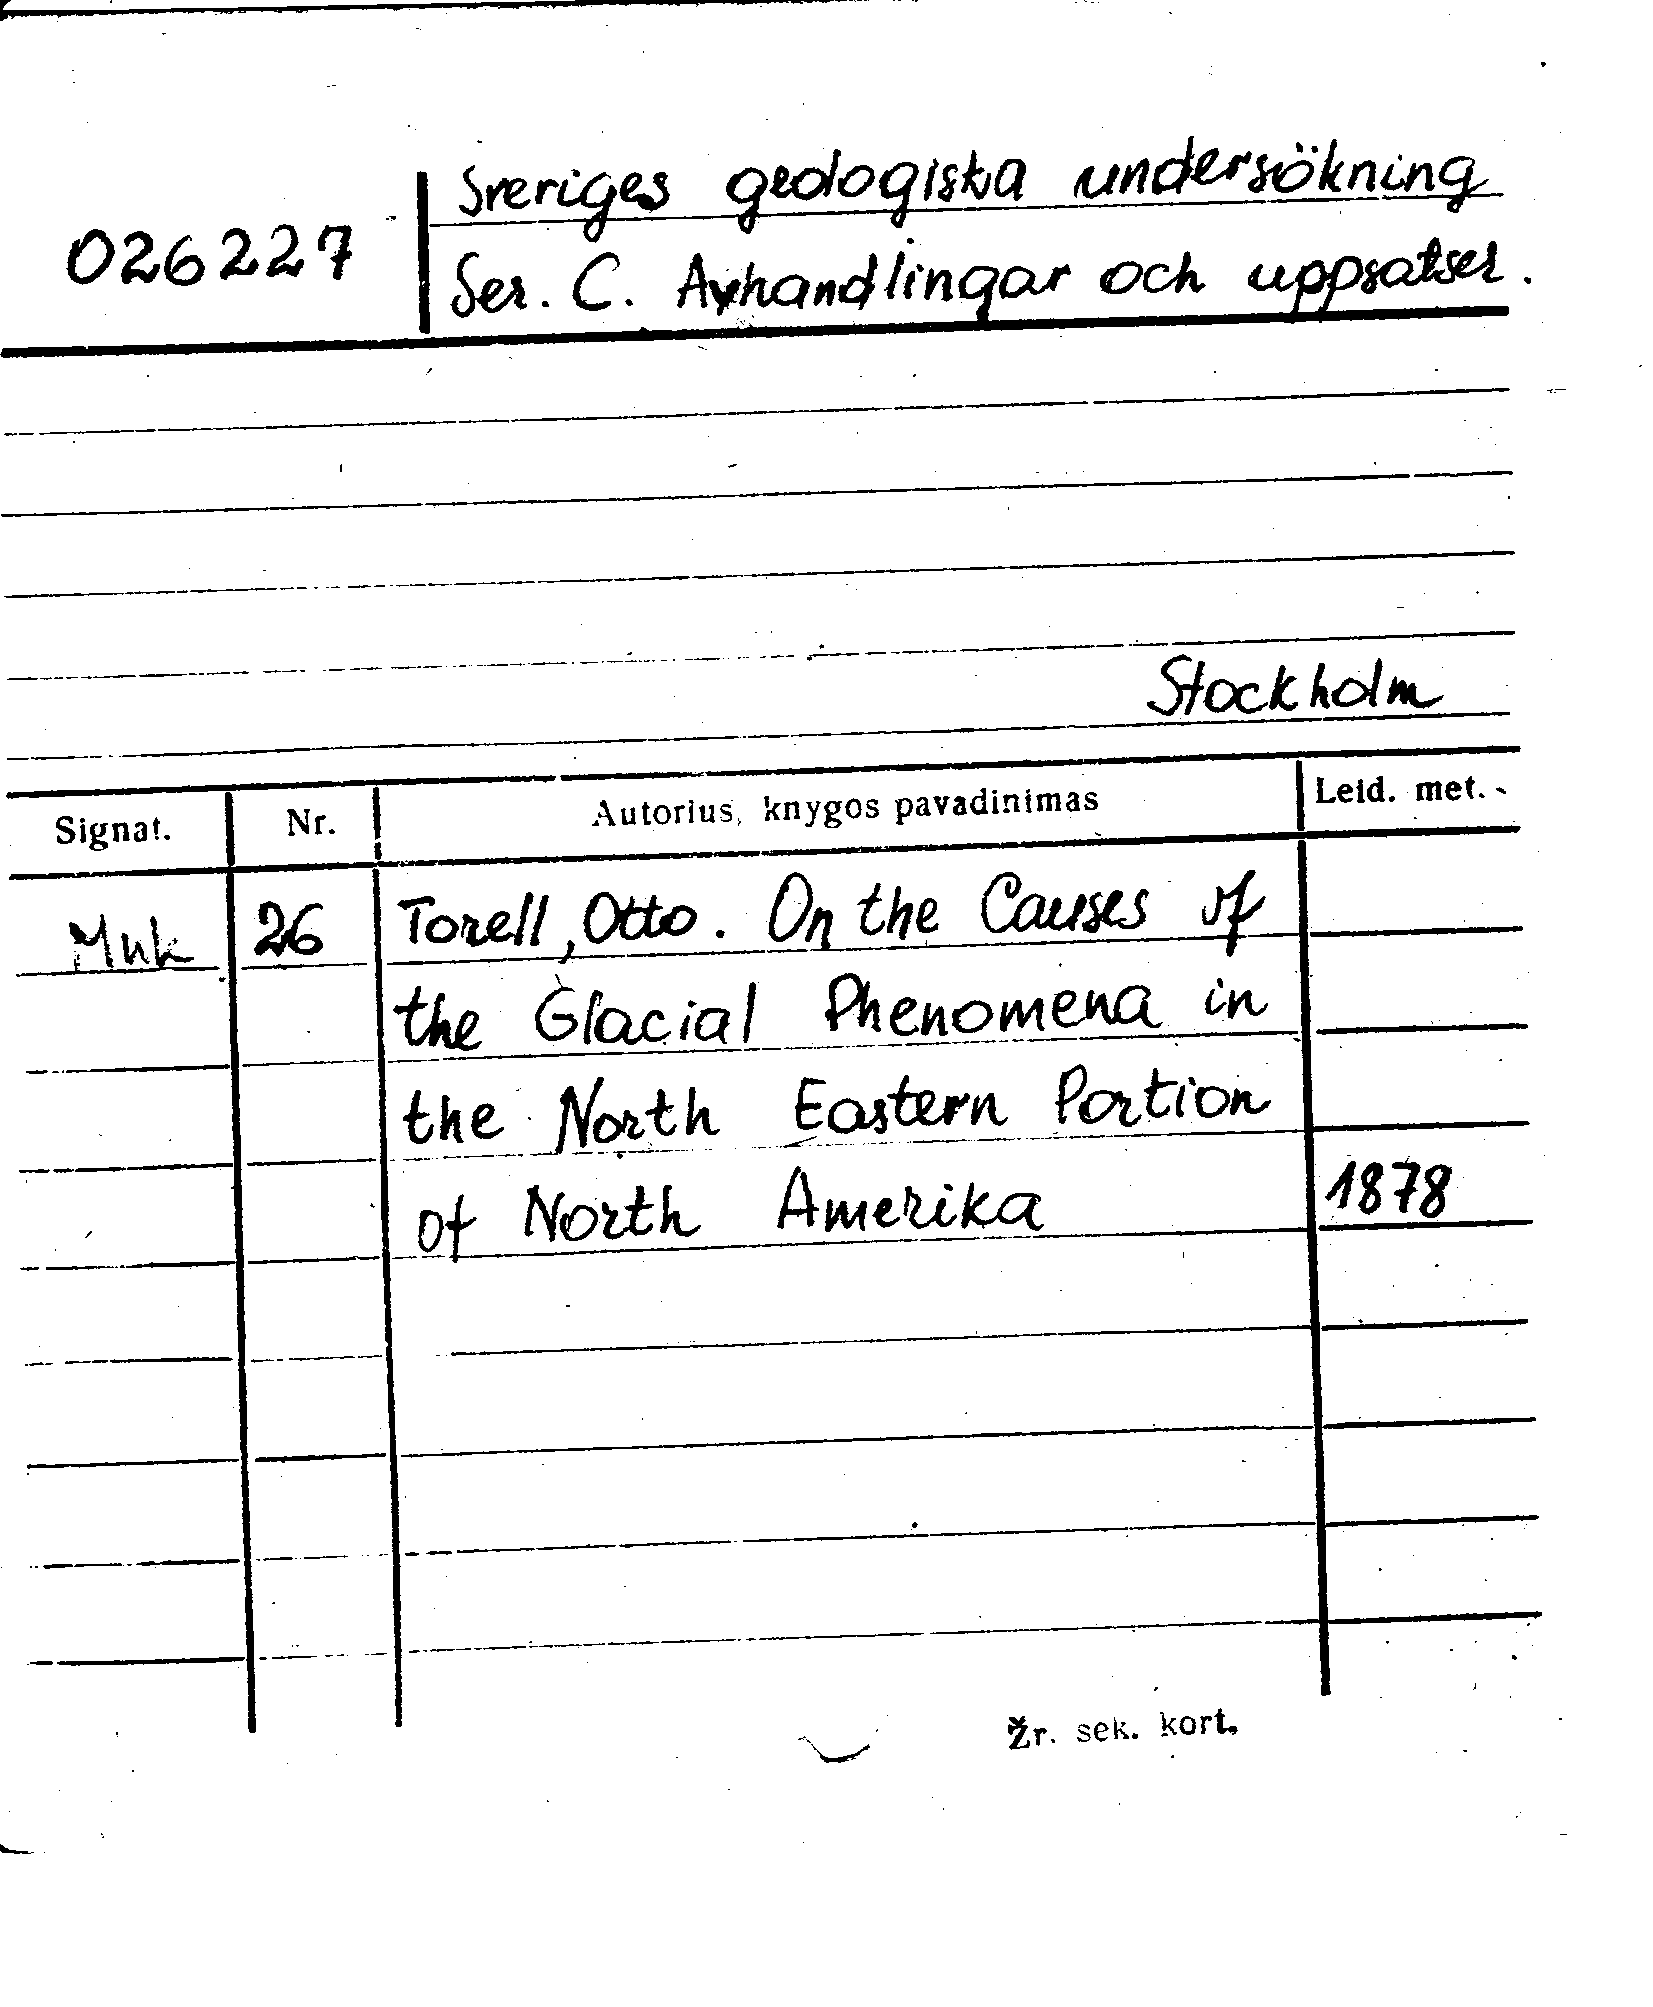 026227
Sveriges geologiska undersökning
Ser. C. Avhandlingar och uppsatser.
Stockholm
Signat. Nr. Autorius, knygos pavadinimas Leid. met.
Muk 26 Torell, Otto. On the Causes of
the Glacial Phenomena in
the North Eastern Portion
of North Amerika 1878
Žr. sek. kort.